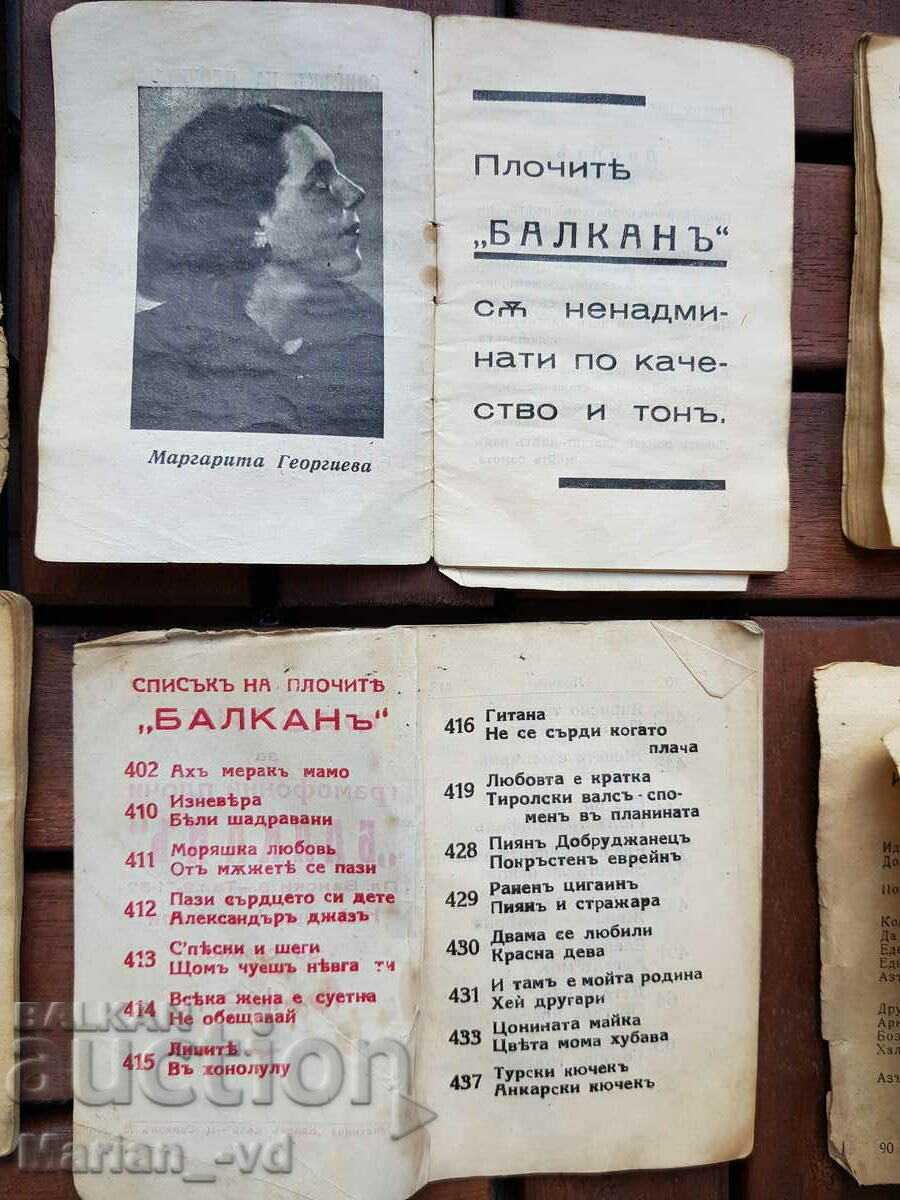 Маргарита Георгиева
Плочитѣ
„БАЛКАНЪ“
сѫ ненадми-
нати по каче-
ство и тонъ.
СПИСЪКЪ НА ПЛОЧИТѢ
„БАЛКАНЪ“
402 Ахъ меракъ мамо
410 Изневѣра
Бѣли шадравани
411 Моряшка любовь
Отъ мѫжетѣ се пази
412 Пази сърдцето си дете
Александъръ джазъ
413 С'пѣсни и шеги
Щомъ чуешъ нѣвга ти
414 Всѣка жена е суетна
Не обещавай
415 Липитѣ
Въ хонолулу
416 Гитана
Не се сърди когато
плача
419 Любовта е кратка
Тиролски валсъ-спо-
менъ въ планината
428 Пиянъ Добруджанецъ
Покръстенъ евреинъ
429 Раненъ циганинъ
Пиянъ и стражара
430 Двама се любили
Красна дева
431 И тамъ е мойта родина
Хей другари
433 Цонината майка
Цвѣта мома хубава
437 Турски кючекъ
Анкарски кючекъ
Ид
До
По
Ко
Да
Едн
Едн
Азъ
Дру
Арм
Боз
Хал
Азъ
90
BALKAN
auction
Marian_-vd